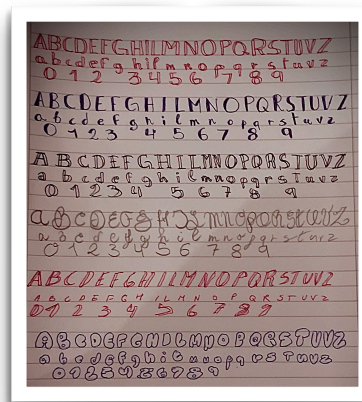 ABCDEFGHILMNOPQRSTUVZ
a b c d e f g h i l m n o p q r s t u v z
0 1 2 3 4 5 6 7 8 9
ABCDEFGHILMNOPQRSTUVZ
a b c d e f g h i l m n o p q r s t u v z
0 1 2 3 4 5 6 7 8 9
ABCDEFGHILMNOPQRSTUVZ
a b c d e f g h i l m n o p q r s t u v z
0 1 2 3 4 5 6 7 8 9
a B C D E F G H I L M N O P Q R S T U V Z
a b c d e f g h i l m n o p q r s t u v z
0 1 2 3 4 5 6 7 8 9
ABCDEFGHILMNOPQRSTUVZ
A B C D E F G H I L M N O P Q R S T U V Z
0 1 2 3 4 5 6 7 8 9
ABCDEFGHILMNOPQRSTUVZ
a b c d e f g h i l m n o p q r s t u v z
0 1 2 3 4 5 6 7 8 9